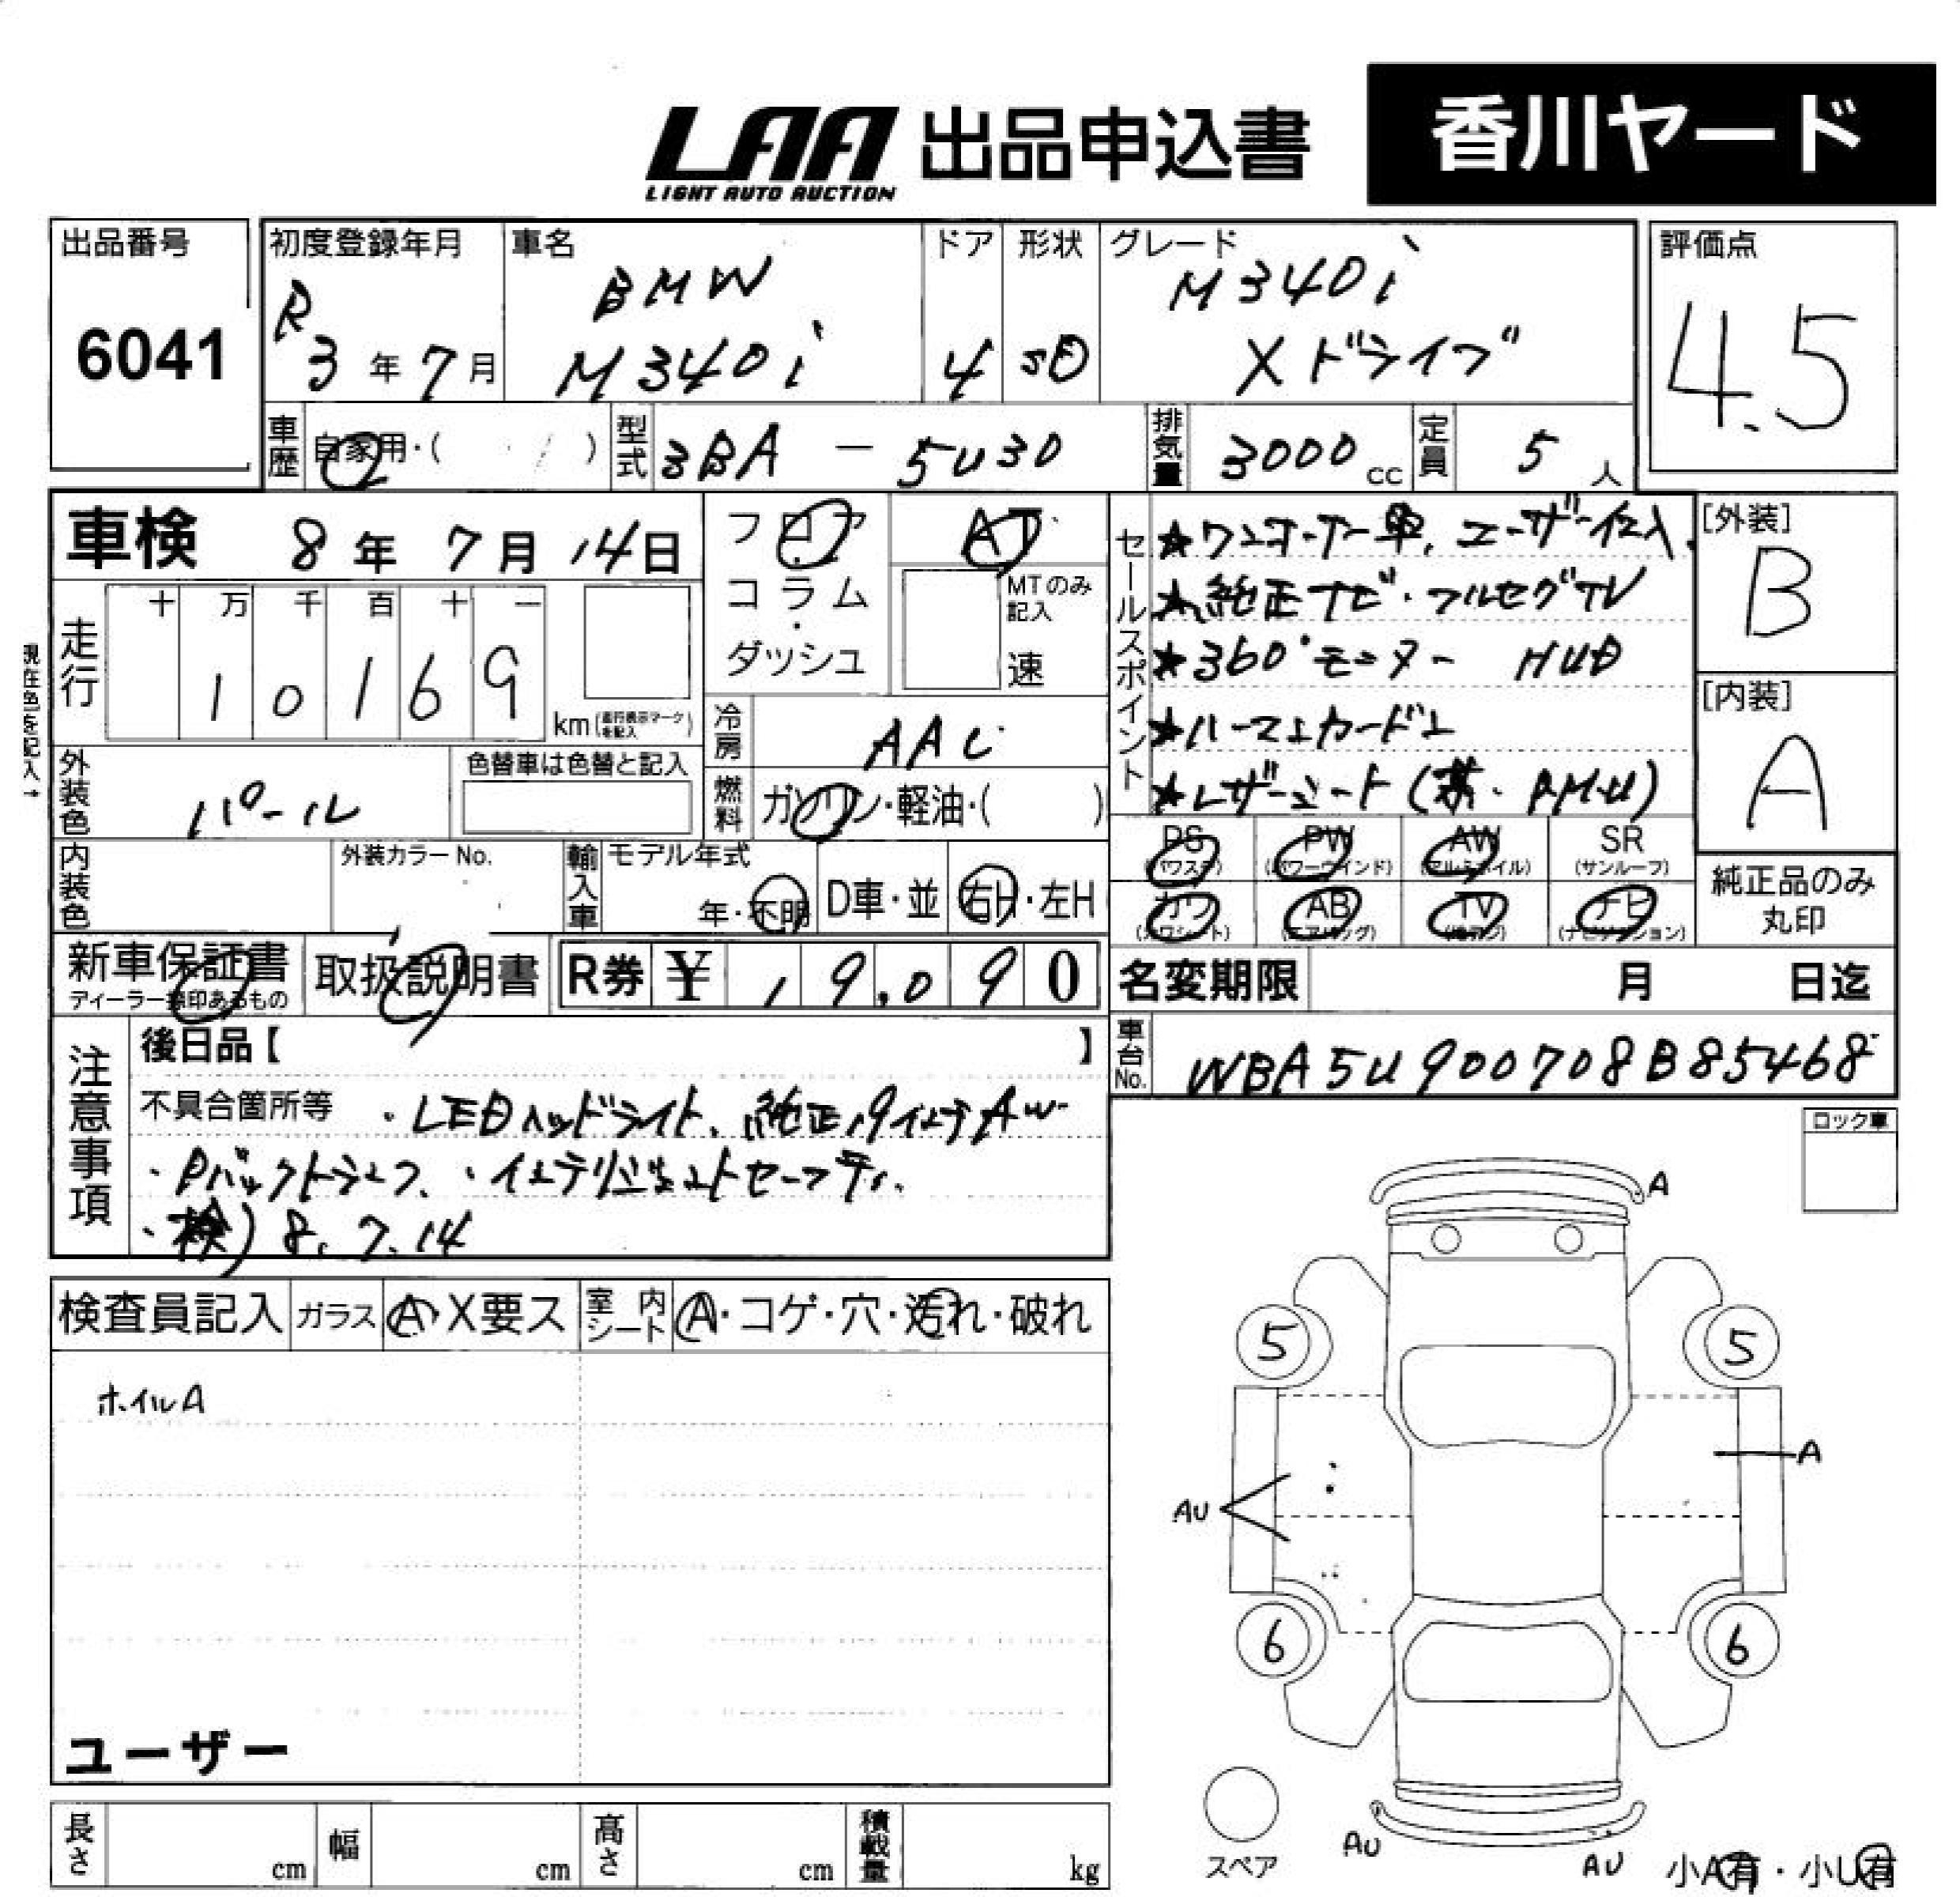 LAA
LIGHT AUTO AUCTION
出品申込書
香川ヤード
出品番号
6041
初度登録年月
R
3年7月
車名
BMW
M340i
ドア
4
形状
SD
グレード
M340i
Xドライブ
評価点
4.5
車歴
自家用・( )
型式
3BA-5U30
排気量
3000cc
定員
5人
車検
8年7月14日
フロア
コラム
・
ダッシュ
AT
MTのみ記入
速
走行
十 万 千 百 十 一
1 0 1 6 9
km(走行表示マークを記入)
現在色を記入→
外装色
パール
色替車は色替と記入
冷房
AAC
燃料
ガソリン・軽油・( )
内装色
外装カラーNo.
輸入車
モデル年式
年・不明
D車・並
右H・左H
セールスポイント
★ワンオーナー車、ユーザー仕入、
★純正ナビ・フルセグTV
★360°モニター HUD
★ハーマンカードン
★レザーシート(黒・PM・H)
PS
(パワステ)
PW
(パワーウインド)
AW
(アルミホイル)
SR
(サンルーフ)
カワ
(カワシート)
AB
(エアバッグ)
TV
ナビ
(ナビゲーション)
[外装]
B
[内装]
A
純正品のみ
丸印
新車保証書
ディーラー捺印あるもの
取扱説明書
R券 ¥19,090
名変期限 月 日迄
車台No.
WBA5U900708B85468
注意事項
後日品【 】
不具合箇所等 ・LEDヘッドライト、純正19インチAW
・Pバックトランク、・インテリジェントセーフティ、
・検)8.7.14
ロック車
検査員記入
ガラス
A・X要ス
室内シート
A・コゲ・穴・汚れ・破れ
ホイルA
ユーザー
A
5
5
A
AU
6
6
スペア
AU
AU
小A有・小U有
長さ cm
幅 cm
高さ cm
積載量 kg